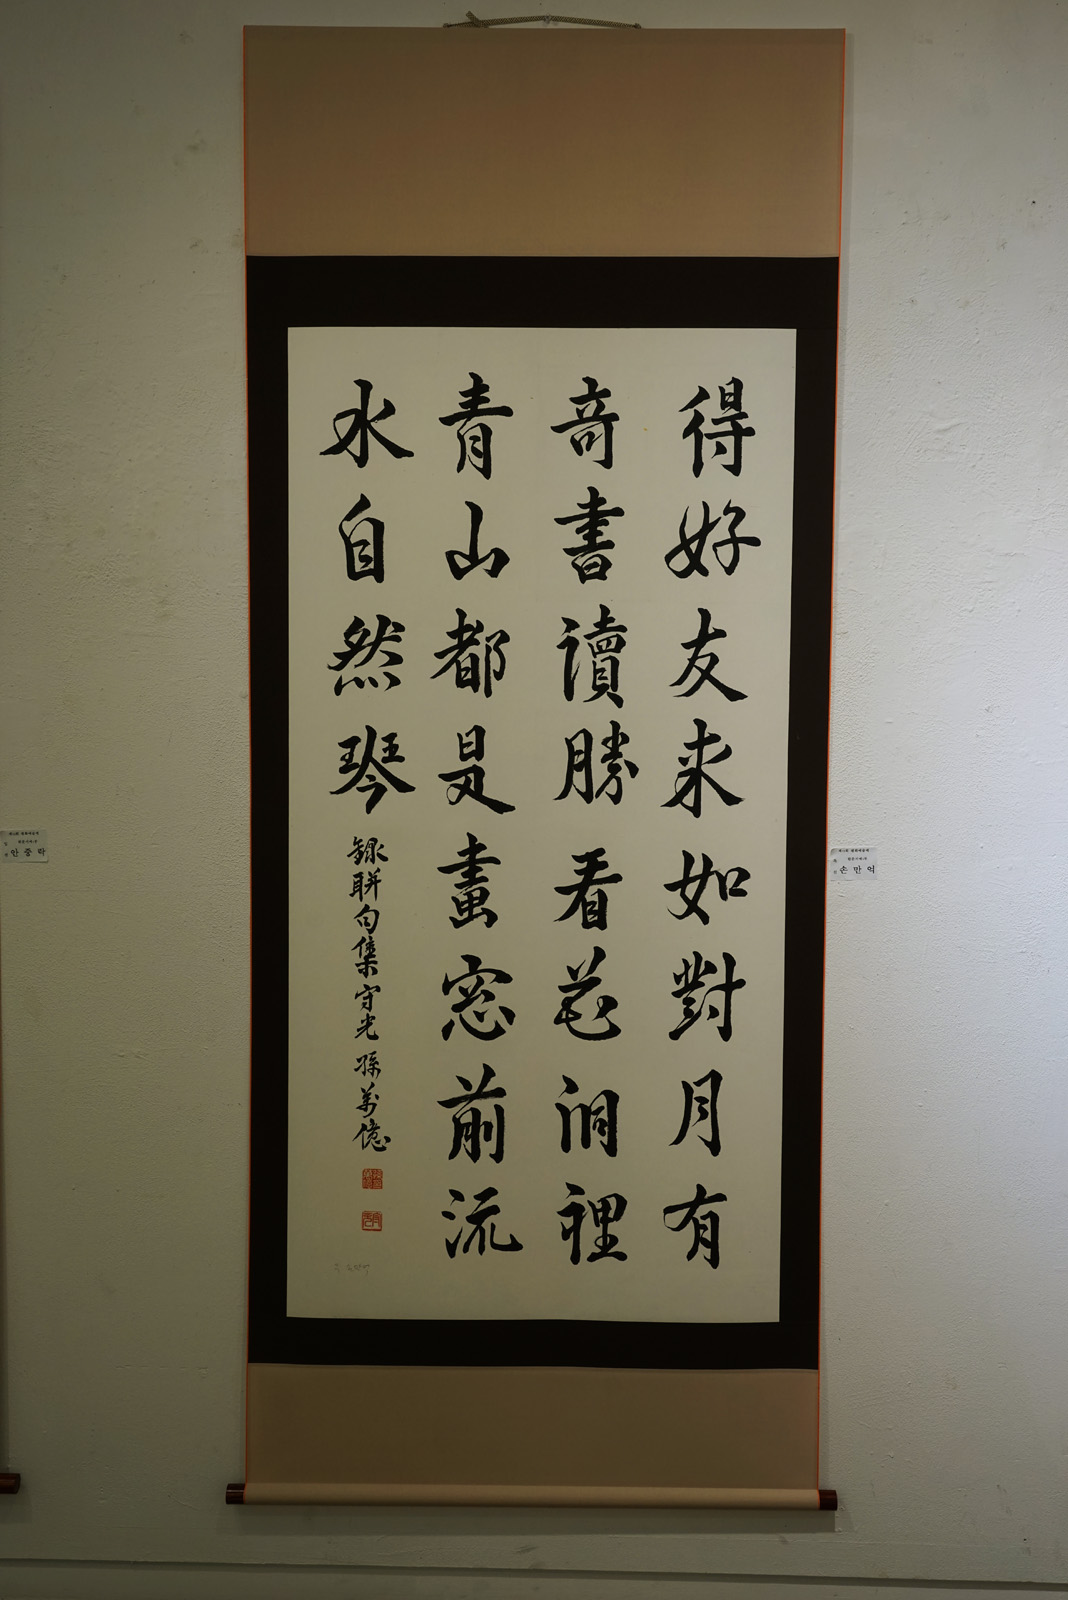 得好友来如對月有
奇書讀勝看花洞裡
青山都是畫窓前流
水自然琴
錄聯句集 守光 孫萬億
안중락
손만억